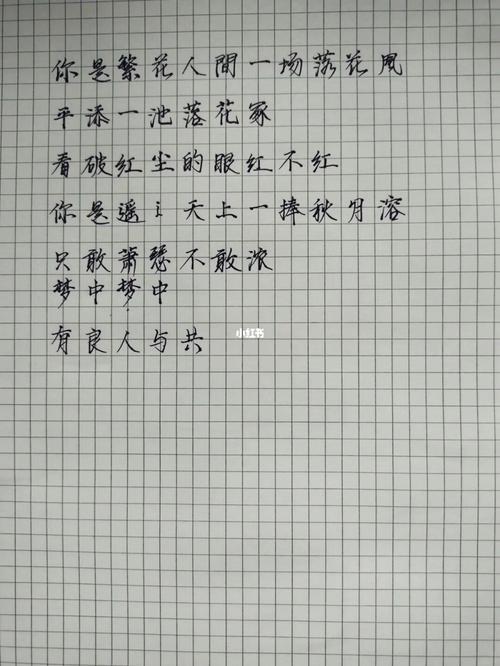 你是繁花人間一场落花風
平添一池落花冢
看破红尘的眼红不红
你是遥ミ天上一捧秋月溶
只敢萧瑟不敢浓
梦中梦中
有良人与共
小红书